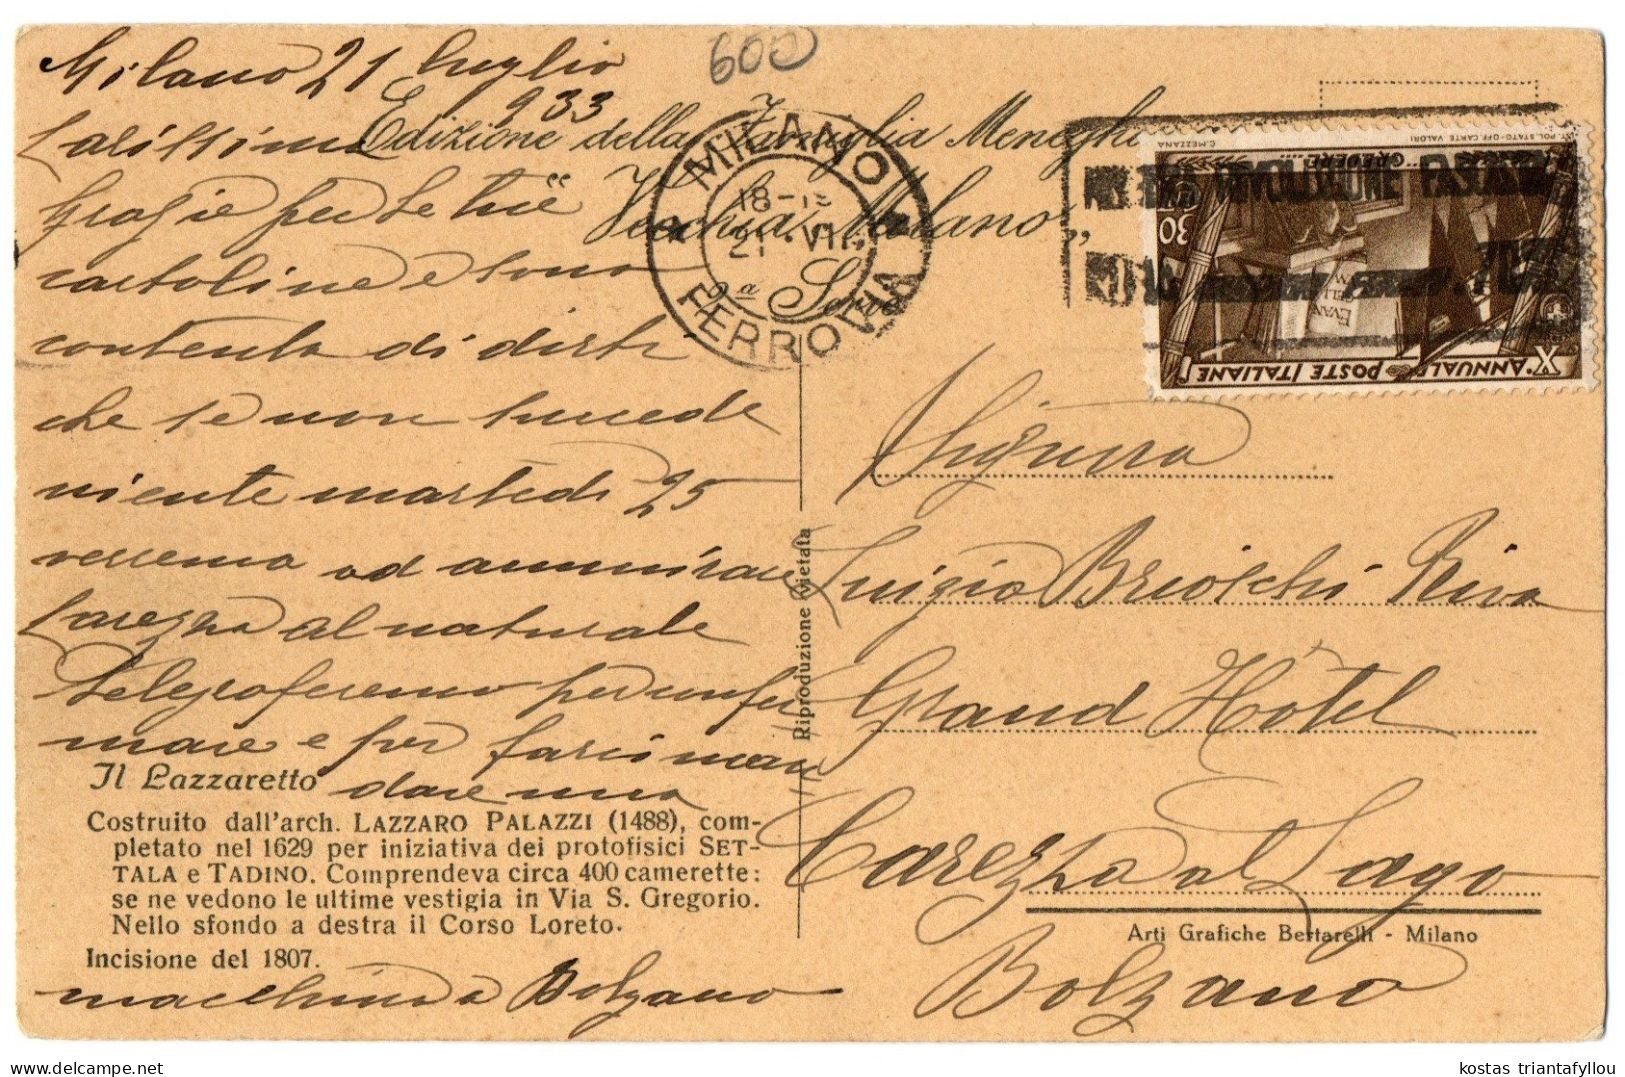 Milano 21 luglio
933
600
Carissima
Edizione della Famiglia Menegh
Grazie per le tue
"Vecchia Milano"
cartoline e sono
2a Serie
contenta di dirti
che se non succede
niente martedì 25
verremo ad ammirare
Carezza al naturale
Telegraferemo per confer
mare e per farci man
dare una
macchina a Bolzano
MILANO
18-19
21 VII
FERROVIA
RIVOLUZIONE FASCI
ROMA
C. MEZZANA
IST. POL. STATO-OFF. CARTE VALORI
CREDERE
30
EVAN
GELI
X ANNUALE POSTE ITALIANE
Signora
Luigia Brioschi Riva
Grand Hôtel
Carezza al Lago
Bolzano
Riproduzione vietata
Il Lazzaretto
Costruito dall'arch. LAZZARO PALAZZI (1488), com-
pletato nel 1629 per iniziativa dei protofisici SET-
TALA e TADINO. Comprendeva circa 400 camerette:
se ne vedono le ultime vestigia in Via S. Gregorio.
Nello sfondo a destra il Corso Loreto.
Incisione del 1807.
Arti Grafiche Bertarelli - Milano
kostas triantafyllou